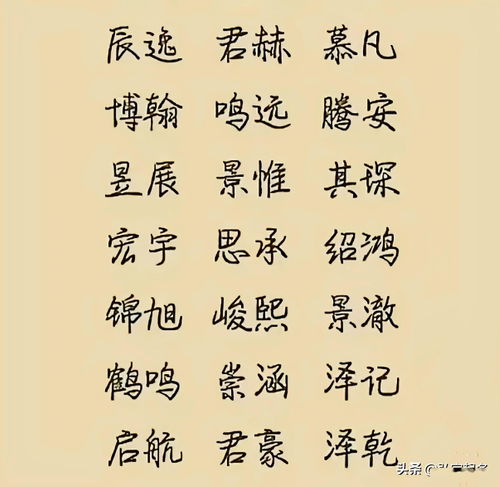 辰逸 君赫 慕凡
博翰 鸣远 腾安
昱展 景惟 其琛
宏宇 思承 绍鸿
锦旭 峻熙 景澈
鹤鸣 崇涵 泽记
启航 君豪 泽乾
头条